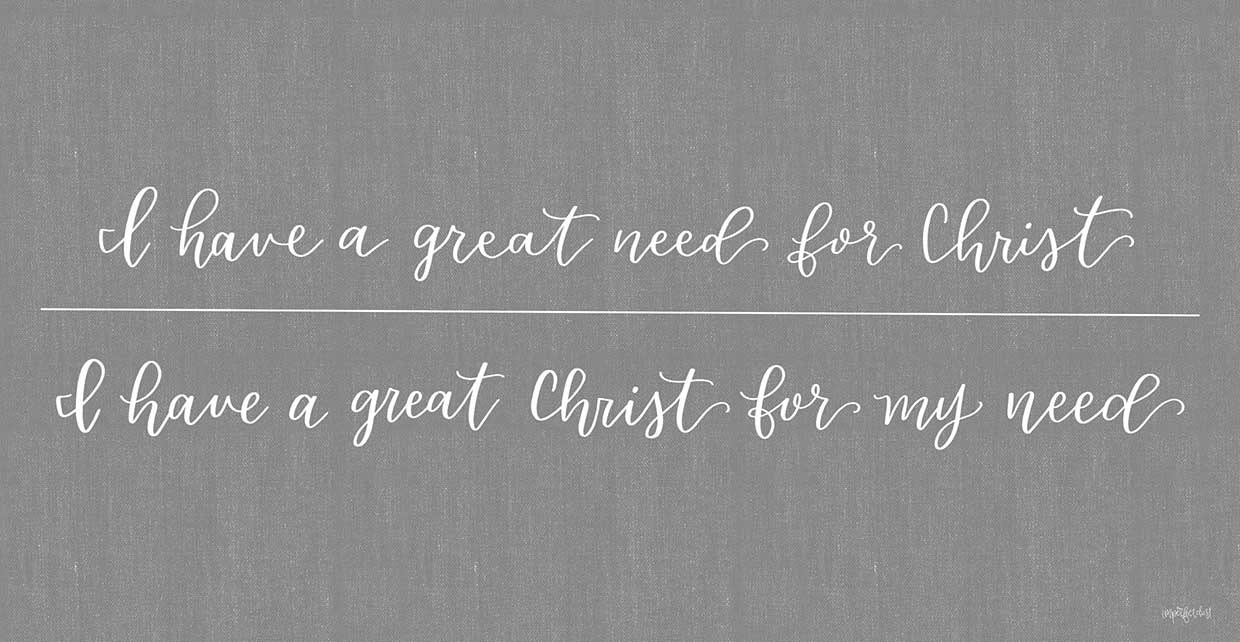 I have a great need for Christ
I have a great Christ for my need
imperfectdust